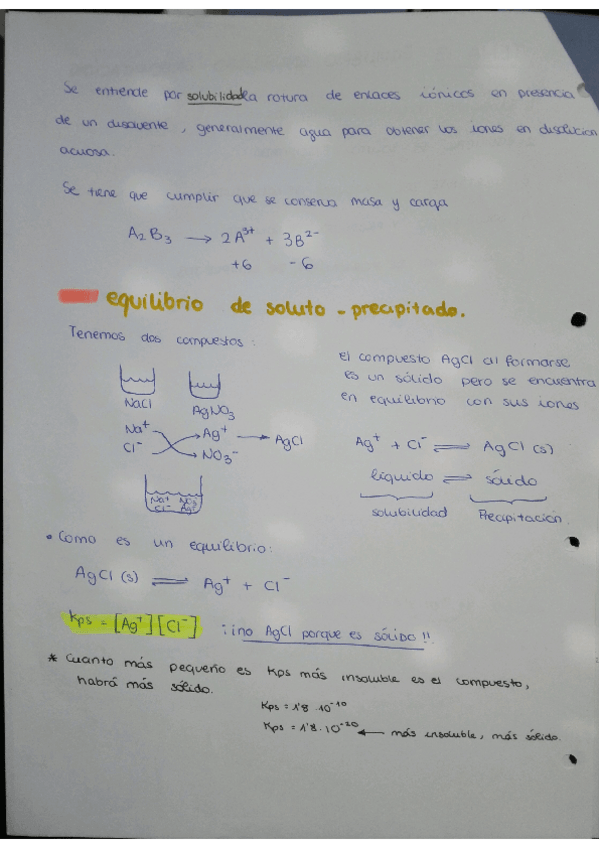 Se entiende por solubilidad la rotura de enlaces iónicos en presencia
de un disolvente, generalmente agua para obtener los iones en disolución
acuosa.
Se tiene que cumplir que se conserva masa y carga
A₂B₃ → 2A³⁺ + 3B²⁻
+6 -6
equilibrio de soluto - precipitado.
Tenemos dos compuestos:
NaCl AgNO₃
Na⁺ Ag⁺ → AgCl
Cl⁻ NO₃⁻
Na⁺ NO₃⁻
Cl⁻ Ag⁺
el compuesto AgCl al formarse
es un sólido pero se encuentra
en equilibrio con sus iones
Ag⁺ + Cl⁻ ⇌ AgCl (s)
líquido ⇌ sólido
solubilidad Precipitación.
• Como es un equilibrio:
AgCl (s) ⇌ Ag⁺ + Cl⁻
Kps = [Ag⁺][Cl⁻] ¡¡no AgCl porque es sólido!!
* Cuanto más pequeño es Kps más insoluble es el compuesto,
habrá más sólido.
Kps = 1'8 · 10⁻¹⁰
Kps = 1'8 · 10⁻²⁰ ← más insoluble, más sólido.